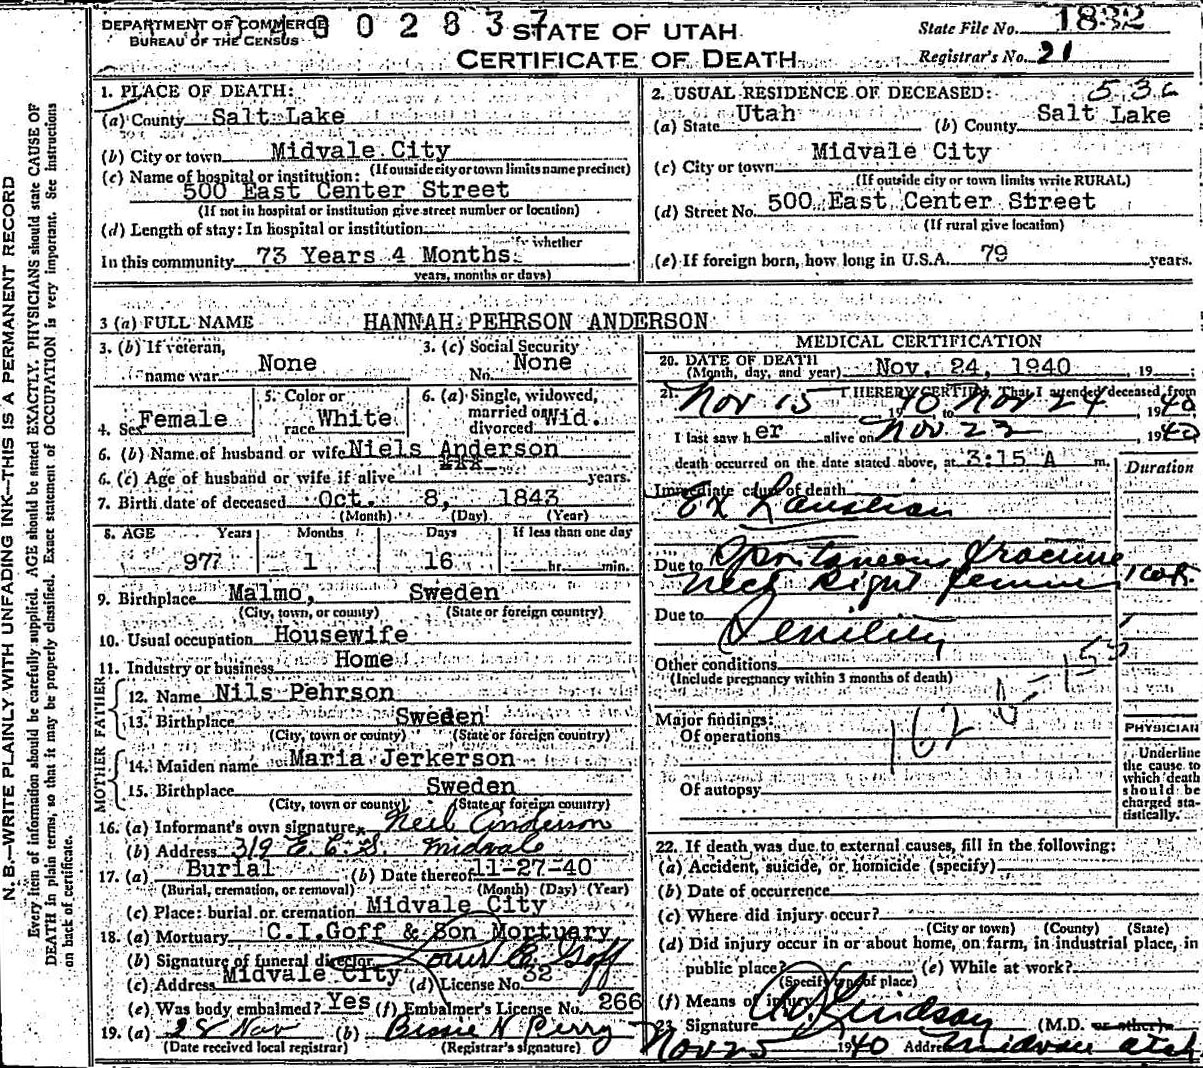 N.B.—WRITE PLAINLY WITH UNFADING INK—THIS IS A PERMANENT RECORD
Every item of information should be carefully supplied. AGE should be stated EXACTLY. PHYSICIANS should state CAUSE OF
DEATH in plain terms, so that it may be properly classified. Exact statement of OCCUPATION is very important. See instructions
on back of certificate.
DEPARTMENT OF COMMERCE
BUREAU OF THE CENSUS
0 0 2 8 3 7
STATE OF UTAH
CERTIFICATE OF DEATH
State File No. 1832
Registrar's No. 21
1. PLACE OF DEATH:
(a) County Salt Lake
(b) City or town Midvale City
(If outside city or town limits name precinct)
(c) Name of hospital or institution:
500 East Center Street
(If not in hospital or institution give street number or location)
(d) Length of stay: In hospital or institution
whether
In this community 73 Years 4 Months
years, months or days)
2. USUAL RESIDENCE OF DECEASED: 536
(a) State Utah (b) County Salt Lake
(c) City or town Midvale City
(If outside city or town limits write RURAL)
(d) Street No. 500 East Center Street
(If rural give location)
(e) If foreign born, how long in U.S.A. 79 years.
3 (a) FULL NAME HANNAH PEHRSON ANDERSON
3. (b) If veteran, name war None
3. (c) Social Security No. None
4. Sex Female
5. Color or race White
6. (a) Single, widowed, married or divorced Wid.
6. (b) Name of husband or wife Niels Anderson
6. (c) Age of husband or wife if alive years.
7. Birth date of deceased Oct. 8, 1843
(Month) (Day) (Year)
8. AGE Years Months Days If less than one day
97 1 16 hr. min.
9. Birthplace Malmo, Sweden
(City, town, or county) (State or foreign country)
10. Usual occupation Housewife
11. Industry or business Home
FATHER
12. Name Nils Pehrson
13. Birthplace Sweden
(City, town or county) (State or foreign country)
MOTHER
14. Maiden name Maria Jerkerson
15. Birthplace Sweden
(City, town or county) (State or foreign country)
16. (a) Informant's own signature Neil Anderson
(b) Address 319 E. C. S. Midvale
17. (a) Burial (b) Date thereof 11-27-40
(Burial, cremation, or removal) (Month) (Day) (Year)
(c) Place: burial or cremation Midvale City
18. (a) Mortuary C.I.Goff & Son Mortuary
(b) Signature of funeral director Goff
(c) Address Midvale City (d) License No. 32
(e) Was body embalmed? Yes (f) Embalmer's License No. 266
19. (a) 28 Nov (b) Bessie N Perry
(Date received local registrar) (Registrar's signature)
MEDICAL CERTIFICATION
20. DATE OF DEATH
(Month, day, and year) Nov. 24, 1940 , 19
21. I HEREBY CERTIFY, That I attended deceased from
Nov 15 1940 to Nov 24, 1940
I last saw her alive on Nov. 23, 1940
death occurred on the date stated above, at 3:15 A m.
Duration
Immediate cause of death
Exhaustion
Due to Spontaneous fracture
neck Right femur
Due to Senility
Other conditions
(Include pregnancy within 3 months of death)
162
Major findings:
Of operations
Of autopsy
PHYSICIAN
Underline
the cause to
which death
should be
charged sta-
tistically.
22. If death was due to external causes, fill in the following:
(a) Accident, suicide, or homicide (specify)
(b) Date of occurrence
(c) Where did injury occur?
(City or town) (County) (State)
(d) Did injury occur in or about home, on farm, in industrial place, in
public place? (e) While at work?
(Specify type of place)
(f) Means of injury
23. Signature Lindsay (M.D. or other)
Nov 25 1940 Address Midvale Utah